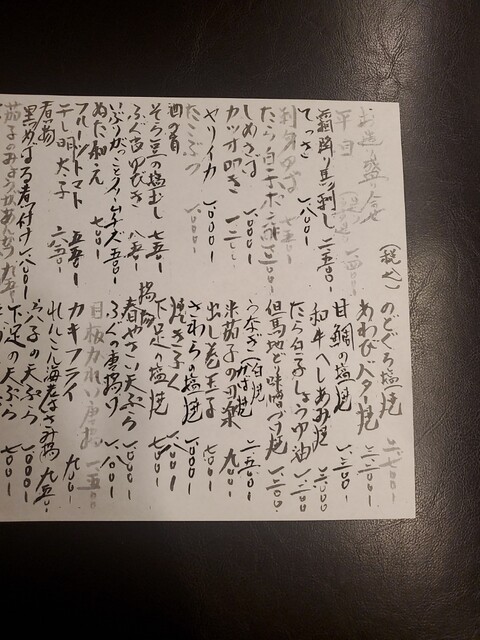 お造り盛り合せ
平目
霜降り馬刺し 二五〇〇
てっさ 一八〇〇
たら白子ポン酢
しめさば 一二〇〇
カツオ叩き 一三〇〇
ヤリイカ 一〇〇〇
たこぶつ 一〇〇〇
酒の肴
そら豆の塩むし 七五〇
ふぐ皮ゆびき 八五〇
いぶりがっことクリームチーズ 五〇〇
ぬた和え 七〇〇
フルーツトマト 五五〇
干し明太子 六五〇
煮物
黒めばる煮付け 一八〇〇
茄子のみょうがあんかけ 九五〇
(税込)
のどぐろ塩焼 二七〇〇
あわびバター焼 二二〇〇
甘鯛の塩焼 一三〇〇
和牛へしあみ焼 二〇〇〇
たら白子しょうゆ油 一二〇〇
但馬地どり味噌づけ焼 一三〇〇
うなぎ(白焼 かば焼) 二五〇〇
米茄子の田楽 九〇〇
出し巻玉子 七〇〇
さわらの塩焼 一〇〇〇
焼き子 一八〇〇
下足の塩焼 七〇〇
揚物
春やさい天ぷら 一〇〇〇
ふぐの唐揚げ 一八〇〇
目板カレイ唐揚 一五〇〇
カキフライ 九〇〇
れんこん海老はさみ揚 九五〇
子の天ぷら 一〇〇〇
下足の天ぷら 七〇〇